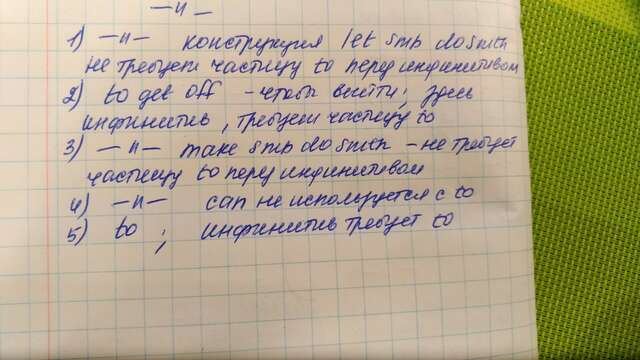 —//—
1) —//— конструкция let smb do smth
не требует частицу to перед инфинитивом
2) to get off - чтобы выйти; здесь
инфинитив, требует частицу to
3) —//— make smb do smth - не требует
частицу to перед инфинитивом
4) —//— can не используется с to
5) to ; инфинитив требует to